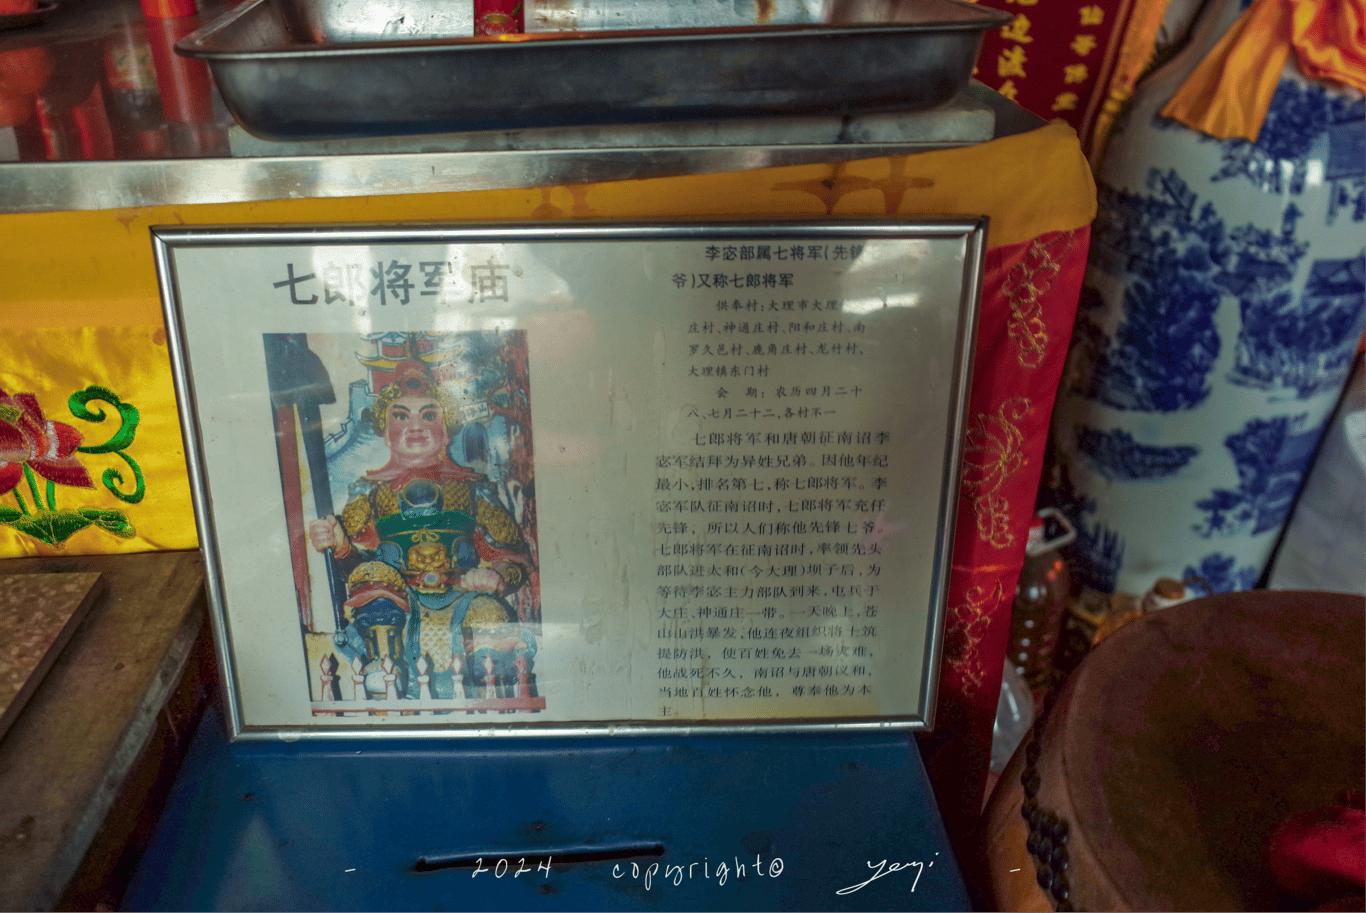 七郎将军庙
李宓部属七将军(先锋
爷)又称七郎将军
供奉村:大理市大理
庄村、神通庄村、阳和庄村、南
罗久邑村、鹿角庄村、龙竹村、
大理镇东门村
会 期: 农历四月二十
八、七月二十二,各村不一
七郎将军和唐朝征南诏李
宓军结拜为异姓兄弟。因他年纪
最小,排名第七,称七郎将军。李
宓军队征南诏时,七郎将军充任
先锋, 所以人们称他先锋七爷。
七郎将军在征南诏时,率领先头
部队进太和(今大理)坝子后,为
等待李宓主力部队到来,屯兵于
大庄、神通庄一带。一天晚上,苍
山山洪暴发,他连夜组织将士筑
提防洪, 使百姓免去一场灾难,
他战死不久, 南诏与唐朝议和,
当地百姓怀念他, 尊奉他为本
主。
- 2024 copyright© yeyi -